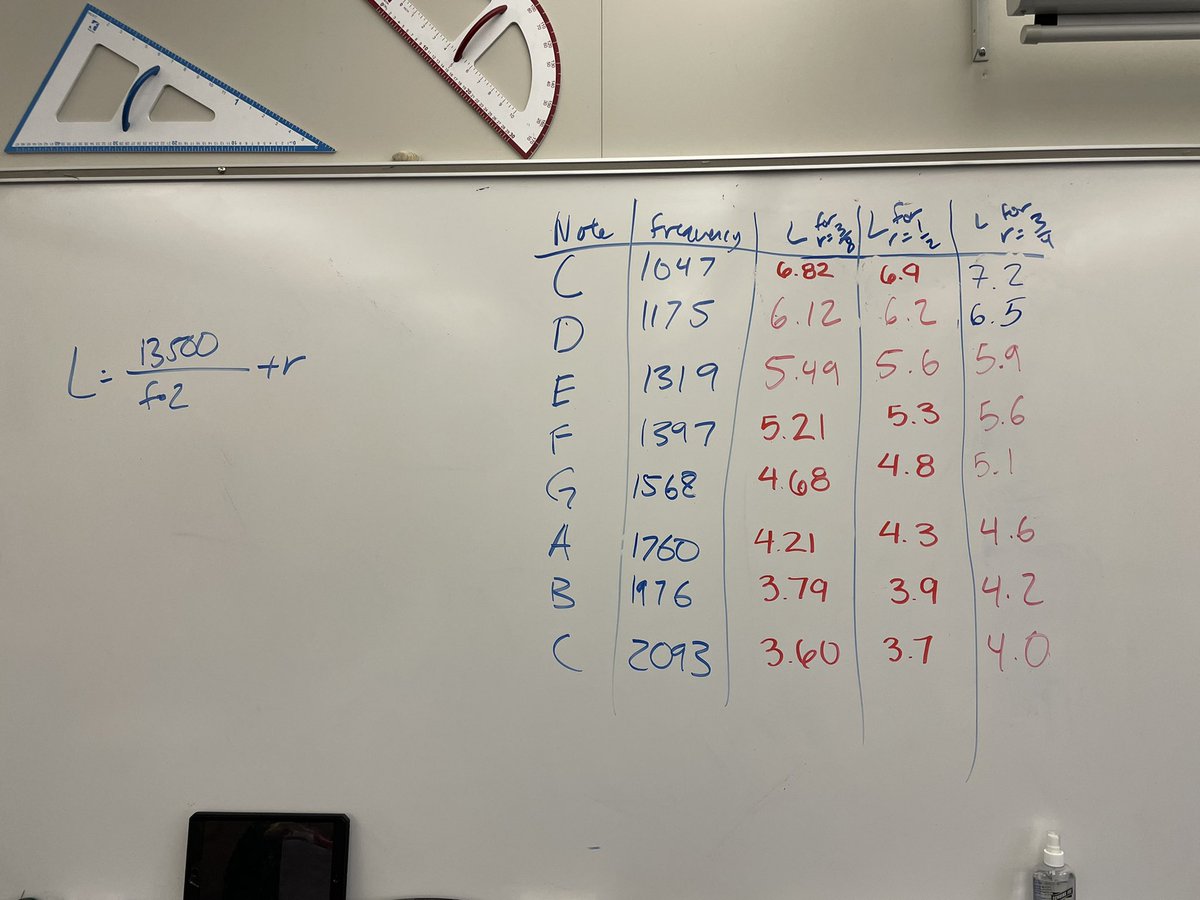 Note Frequency L for r=3/8 L for r=1/2 L for r=3/4
C 1047 6.82 6.9 7.2
D 1175 6.12 6.2 6.5
E 1319 5.49 5.6 5.9
F 1397 5.21 5.3 5.6
G 1568 4.68 4.8 5.1
A 1760 4.21 4.3 4.6
B 1976 3.79 3.9 4.2
C 2093 3.60 3.7 4.0
L = 13500 / f•2 + r